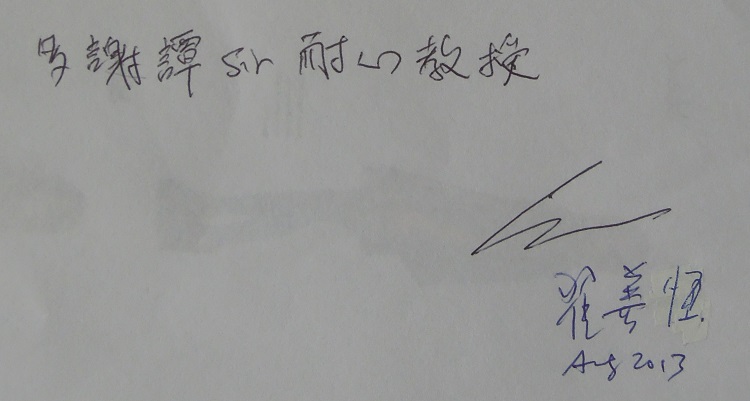 多謝譚sir耐心教授
翟善恆
Aug 2013